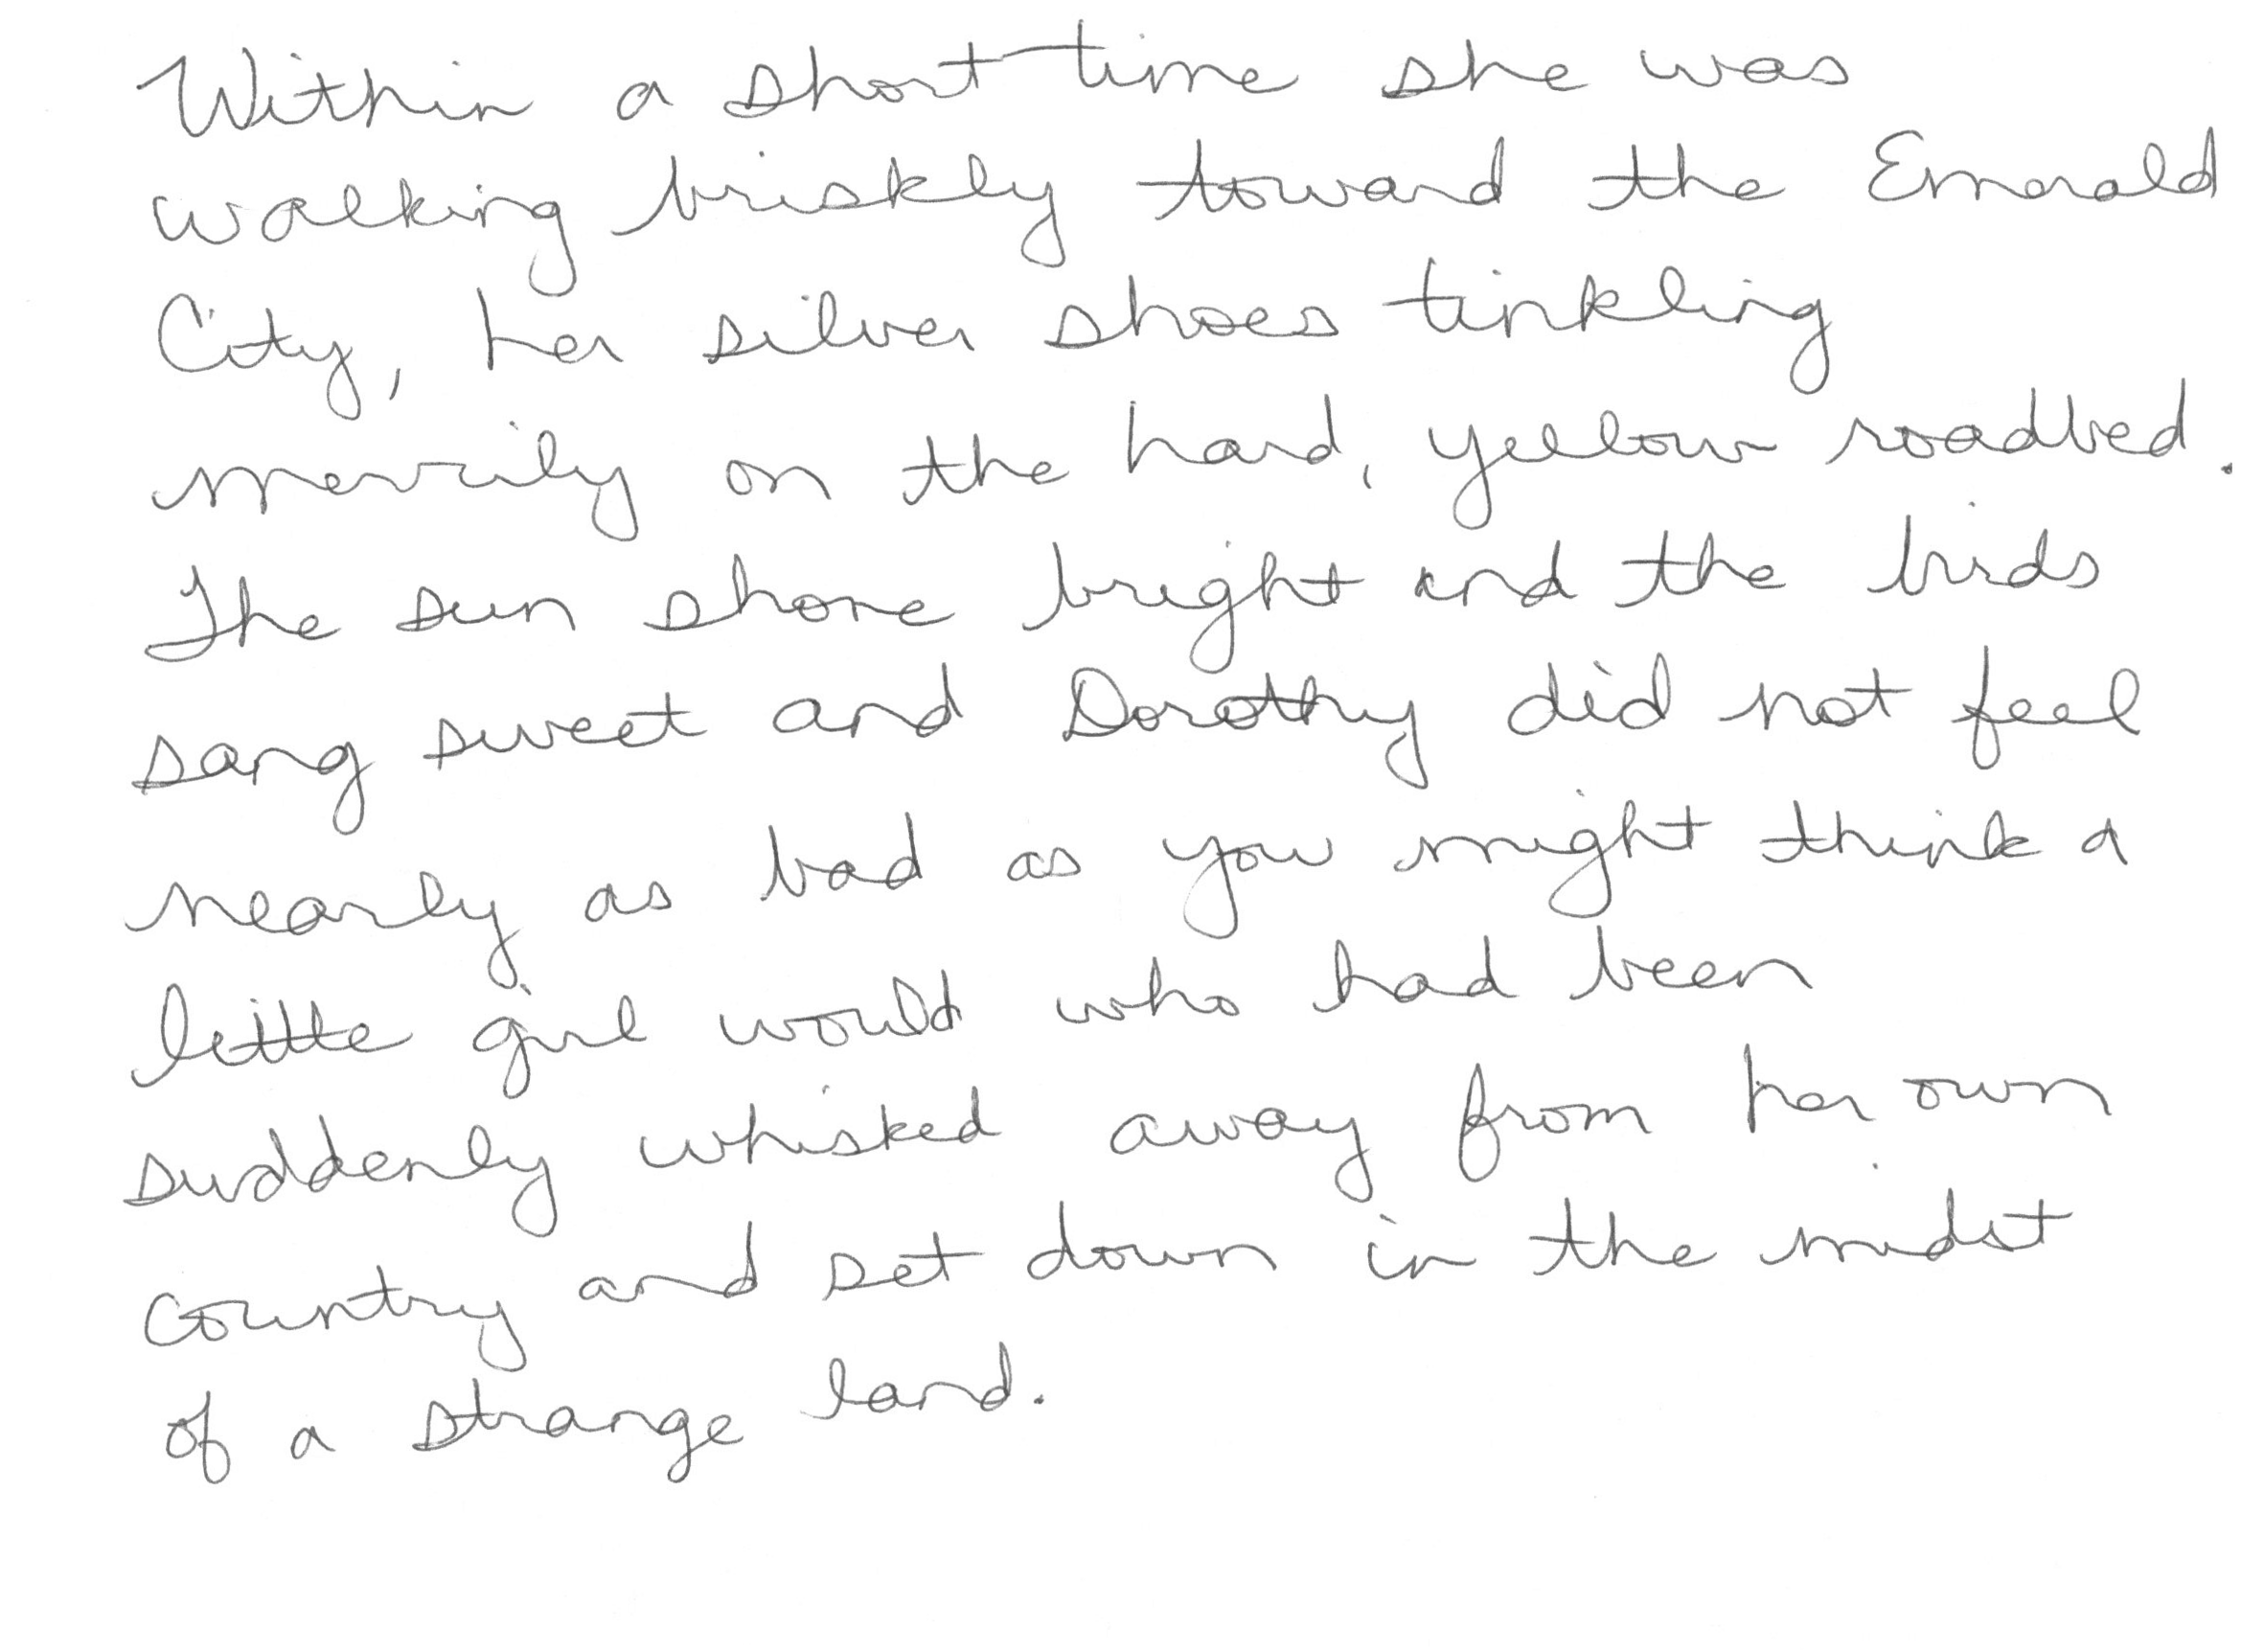 Within a short time she was
walking briskly toward the Emerald
City, her silver shoes tinkling
merrily on the hard, yellow roadbed.
The sun shone bright and the birds
sang sweet and Dorothy did not feel
nearly as bad as you might think a
little girl would who had been
suddenly whisked away from her own
country and set down in the midst
of a strange land.